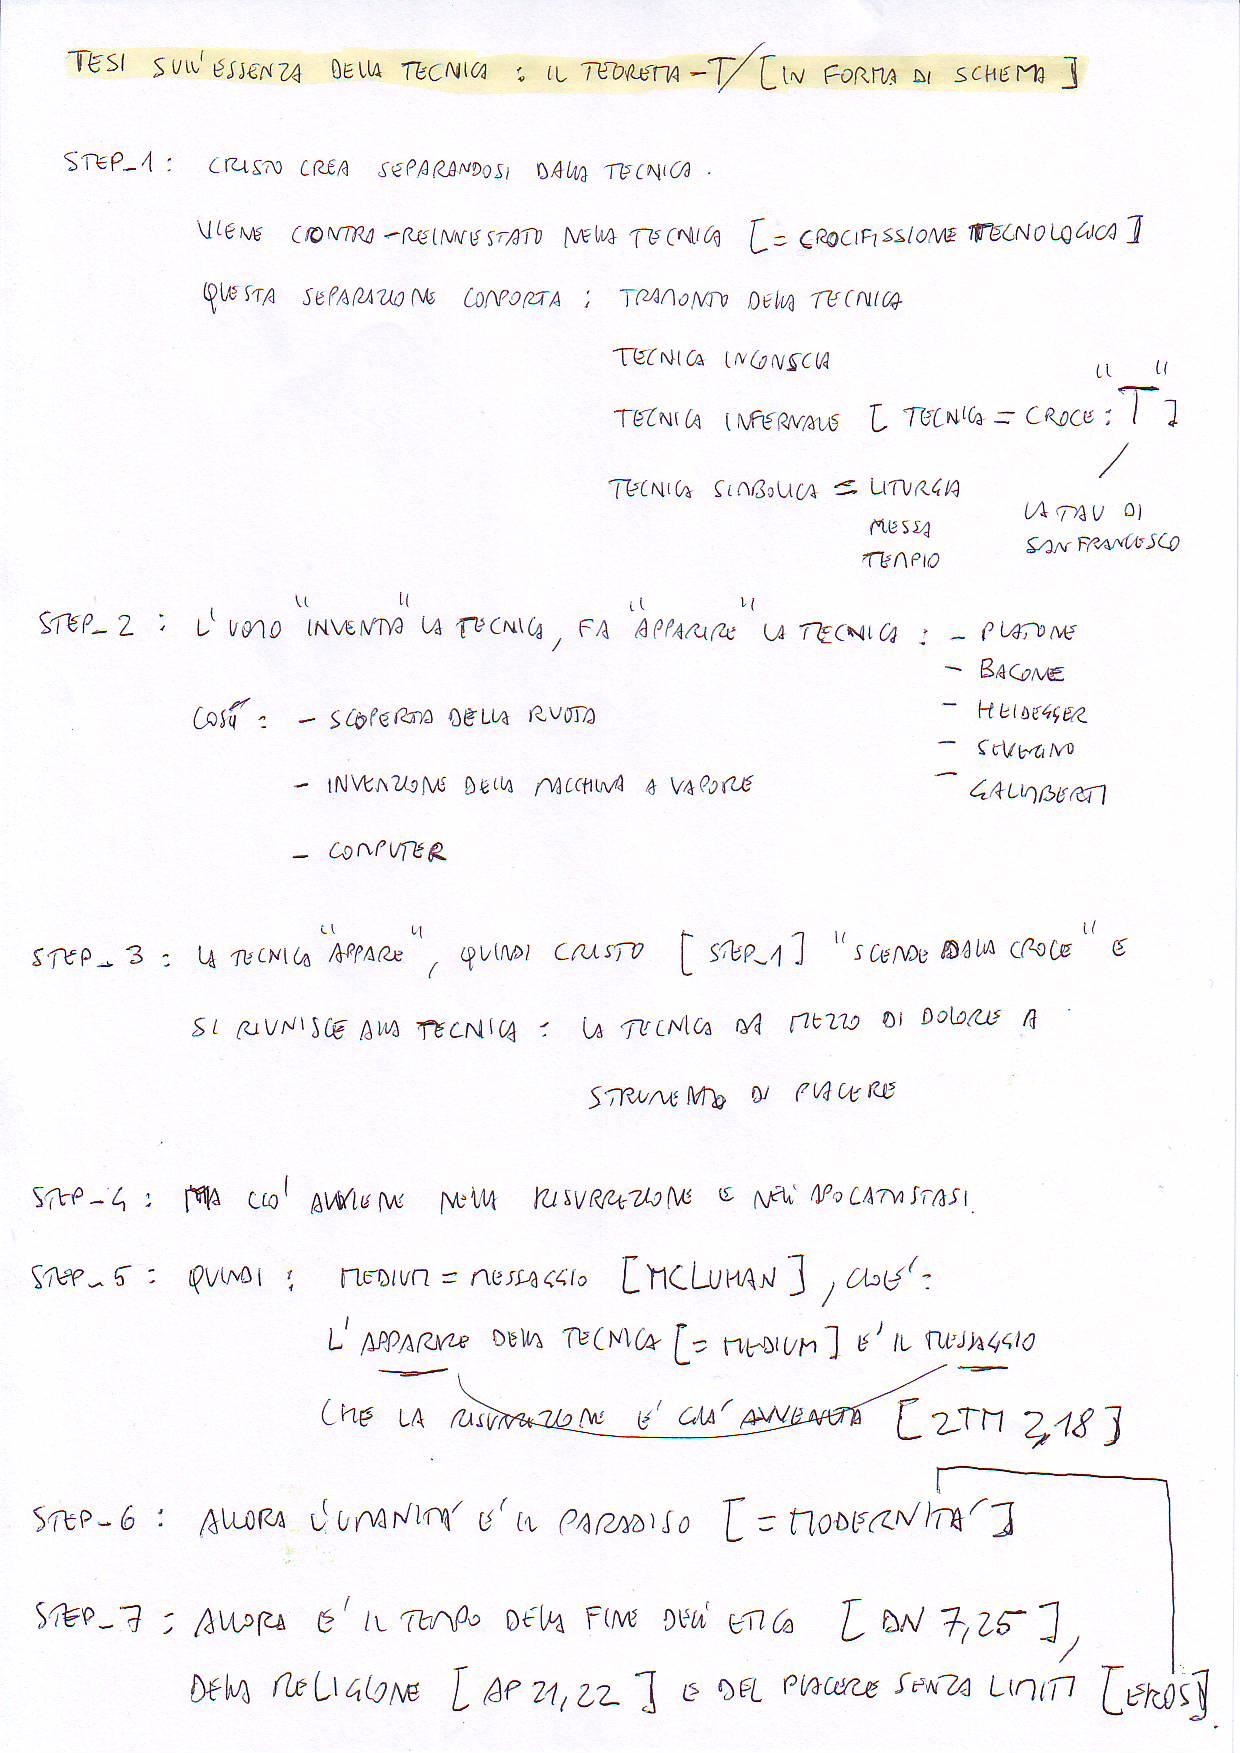 TESI SULL'ESSENZA DELLA TECNICA : IL TEOREMA-T/ [IN FORMA DI SCHEMA]
STEP_1 : CRISTO CREA SEPARANDOSI DALLA TECNICA.
VIENE CONTRO-REINNESTATO NELLA TECNICA [= CROCIFISSIONE TECNOLOGICA]
QUESTA SEPARAZIONE COMPORTA : TRAMONTO DELLA TECNICA
TECNICA INCONSCIA
TECNICA INFERNALE [ TECNICA = CROCE : "T" ]
TECNICA SIMBOLICA = LITURGIA
MESSA
TEMPIO
LA TAU DI
SAN FRANCESCO
STEP_2 : L'UOMO "INVENTA" LA TECNICA, FA "APPARIRE" LA TECNICA : - PLATONE
- BACONE
- HEIDEGGER
- SEVERINO
- GALIMBERTI
COSÌ : - SCOPERTA DELLA RUOTA
- INVENZIONE DELLA MACCHINA A VAPORE
- COMPUTER
STEP_3 : LA TECNICA "APPARE", QUINDI CRISTO [STEP_1] "SCENDE DALLA CROCE" E
SI RIUNISCE ALLA TECNICA : LA TECNICA DA MEZZO DI DOLORE A
STRUMENTO DI PIACERE
STEP_4 : MA CIO' AVVIENE NELLA RISURREZIONE E NELL'APOCATASTASI.
STEP_5 : QUINDI : MEDIUM = MESSAGGIO [MCLUHAN], CIOE' :
L'APPARIRE DELLA TECNICA [= MEDIUM] E' IL MESSAGGIO
CHE LA RISURREZIONE E' GIA' AVVENUTA [2TM 2,18]
STEP_6 : ALLORA L'UMANITA' E' IL PARADISO [= MODERNITA']
STEP_7 : ALLORA E' IL TEMPO DELLA FINE DELL'ETICA [DN 7,25],
DELLA RELIGIONE [AP 21,22] E DEL PIACERE SENZA LIMITI [EROS].